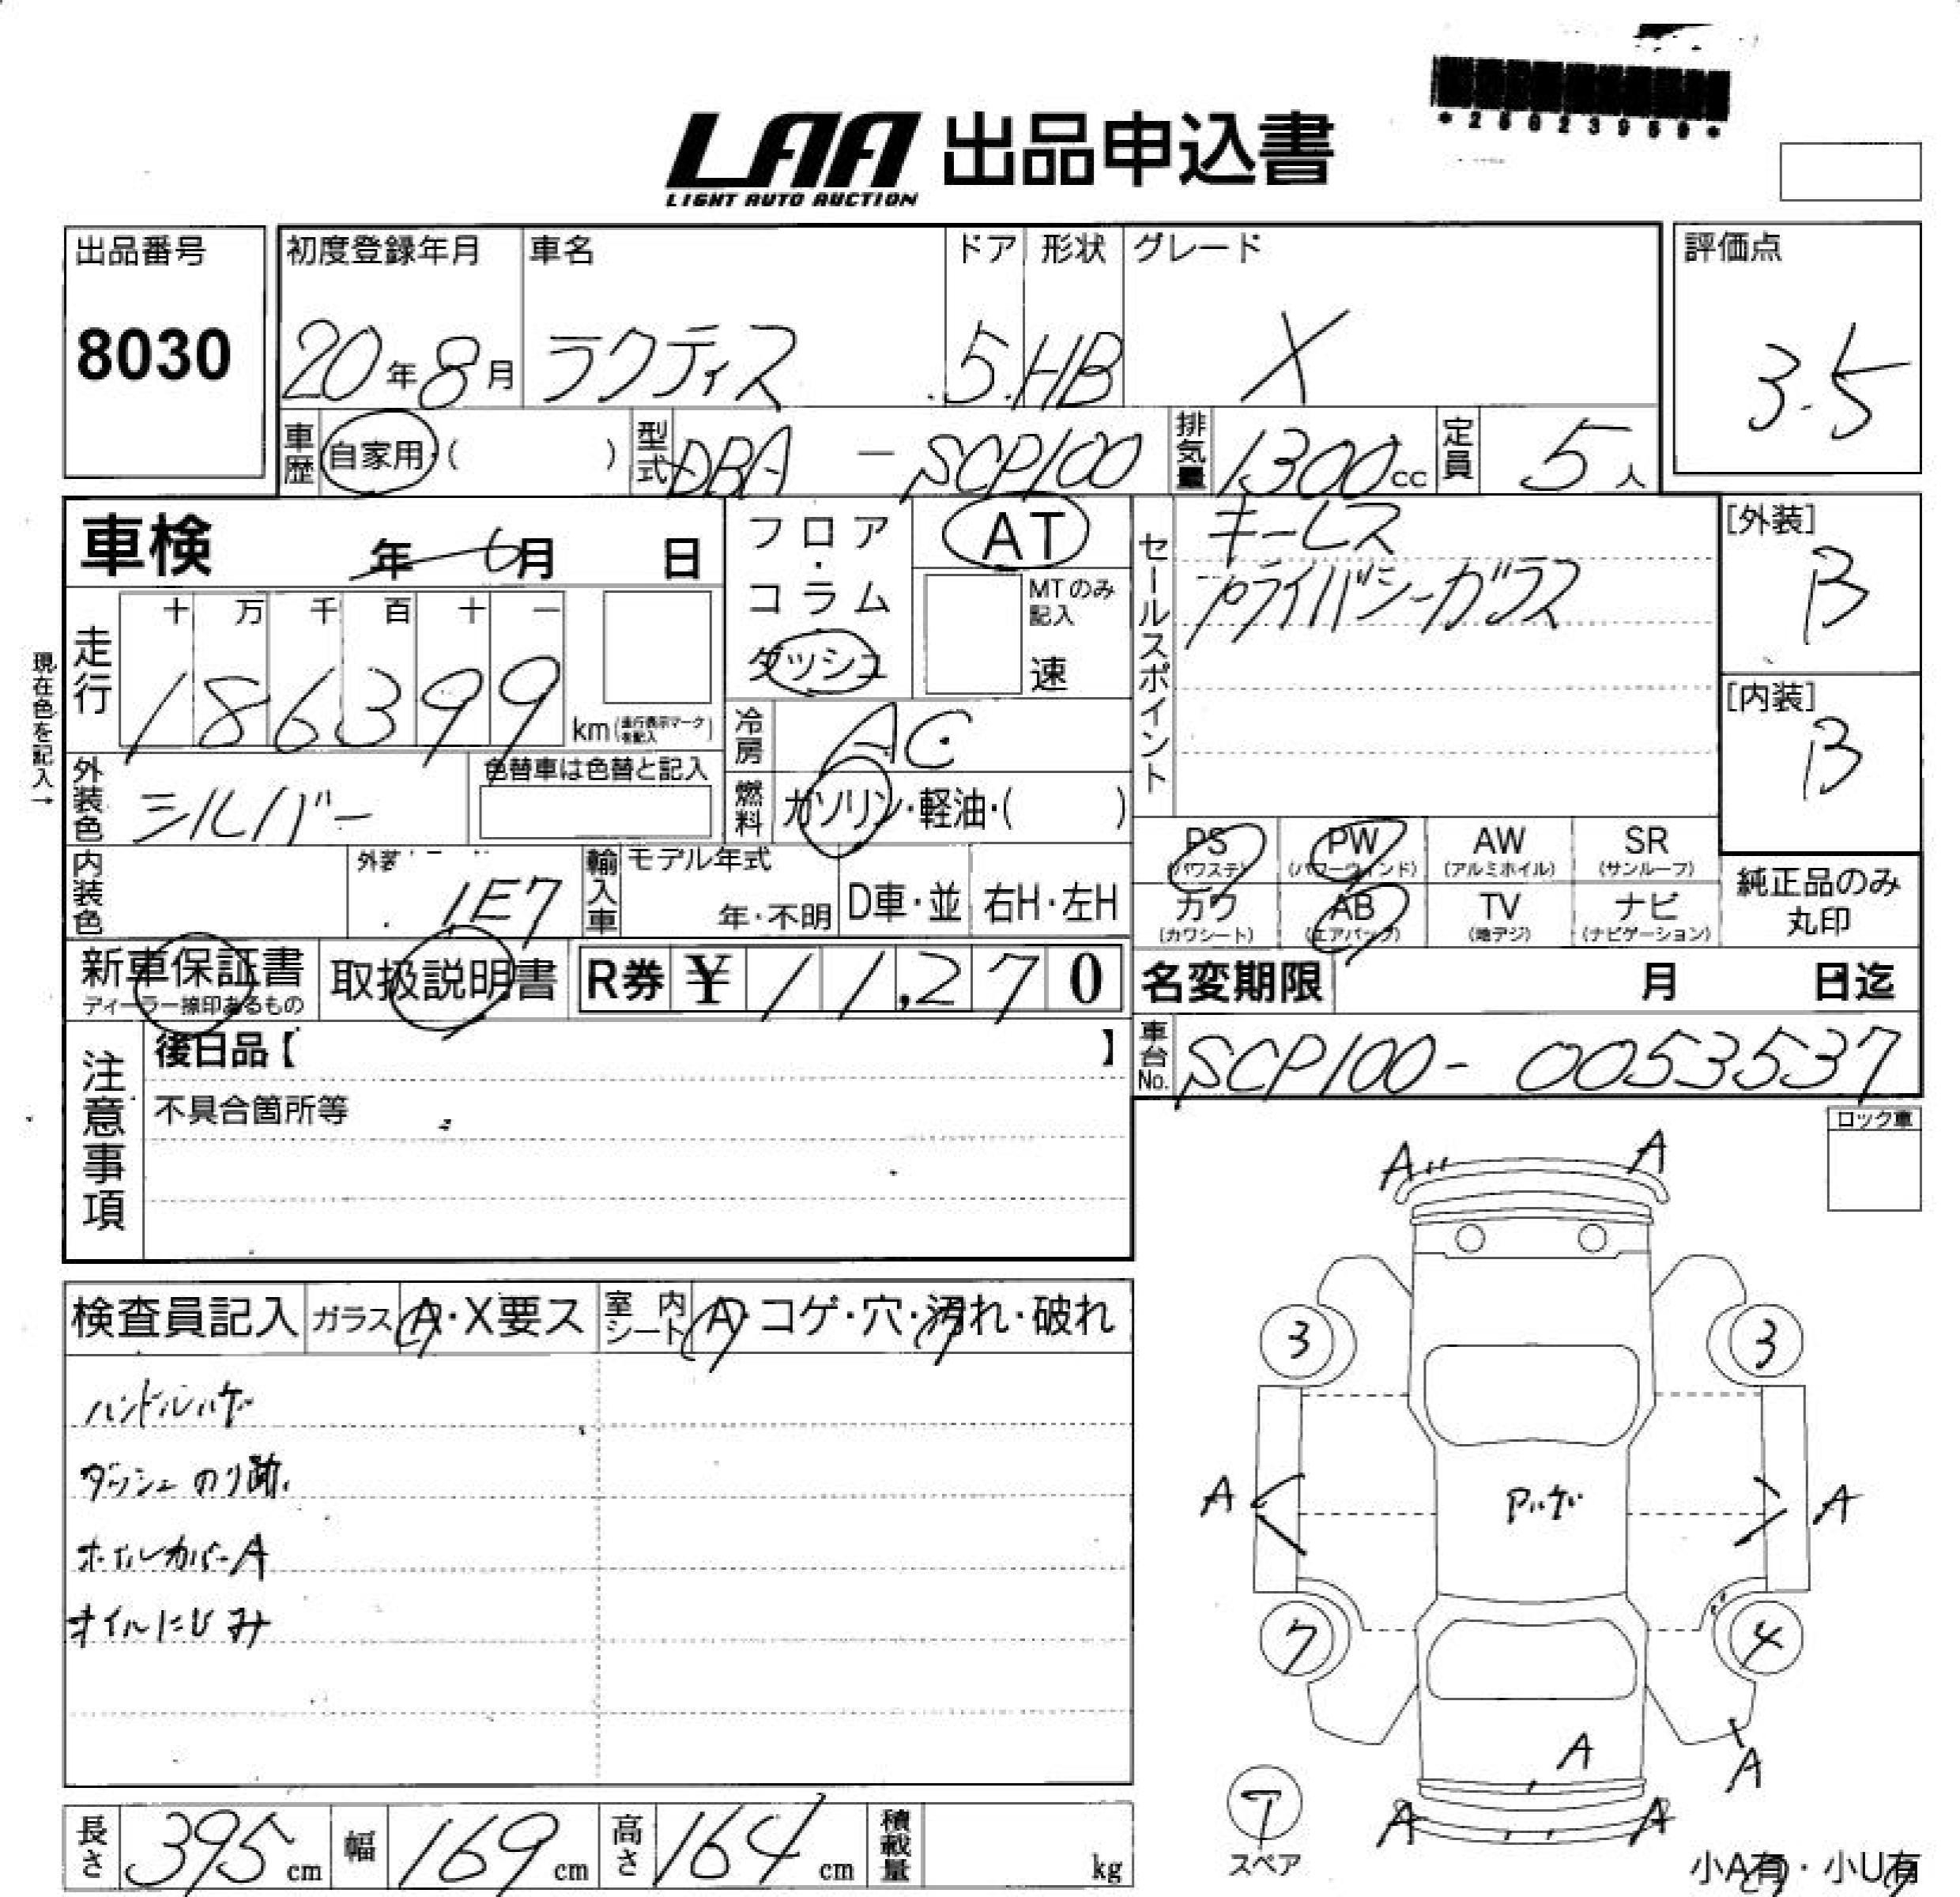 *26023959*
LAA 出品申込書
LIGHT AUTO AUCTION
出品番号 初度登録年月 車名 ドア 形状 グレード 評価点
8030 20年8月 ラクティス 5 HB X 3.5
車歴 自家用・( ) 型式 DBA - SCP100 排気量 1300cc 定員 5人
車検 年 月 日 フロア・コラム ダッシュ AT
MTのみ記入 速
セールスポイント キーレス
プライバシーガラス
[外装] B
[内装] B
現在色を記入→
走行 十 万 千 百 十 一
186399 km (走行表示マークを記入)
冷房 AC
外装色 シルバー 色替車は色替と記入
燃料 ガソリン・軽油・( )
PS (パワステ) PW (パワーウィンド) AW (アルミホイル) SR (サンルーフ)
カワ (カワシート) AB (エアバッグ) TV (地デジ) ナビ (ナビゲーション)
純正品のみ丸印
内装色 1E7 輸入車 モデル年式 年・不明 D車・並 右H・左H
新車保証書 取扱説明書 R券 ¥ 11,270 名変期限 月 日迄
車台No. SCP100-0053537
注意事項 後日品【 】
不具合箇所等
ロック車
A A
検査員記入 ガラス A・X要ス 室内シート A・コゲ・穴・汚れ・破れ
3 3
ハンドルハゲ
ダッシュのり跡
ホイルカバーA
オイルにじみ
A Pハゲ A
7 4
A A
T
スペア
A A
長さ 395cm 幅 169cm 高さ 164cm 積載量 kg
小A有・小U有